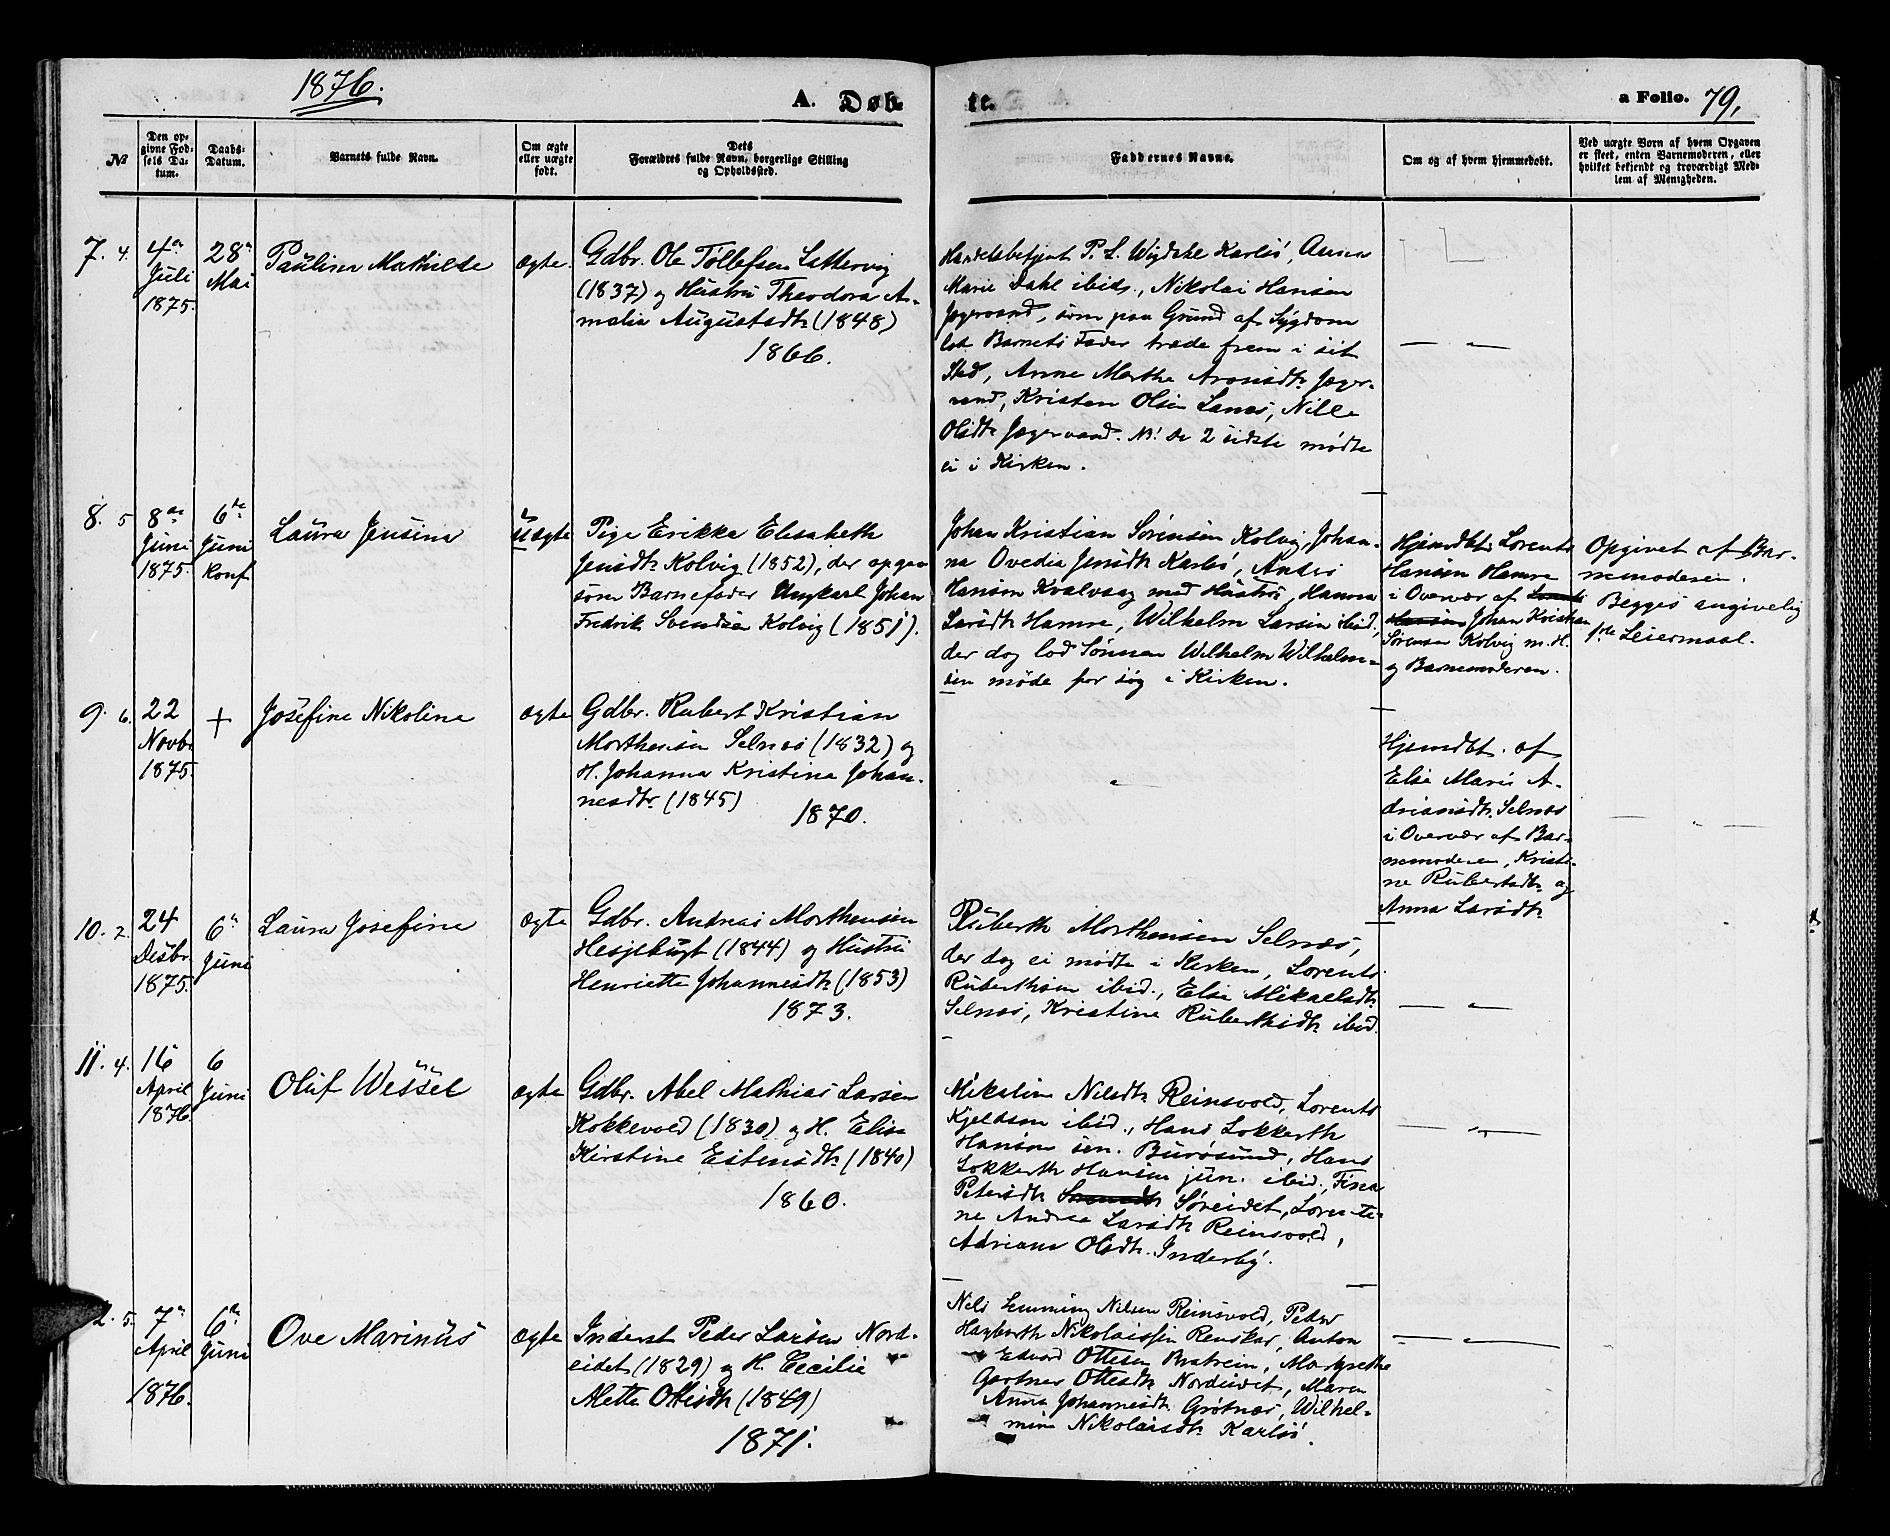 1876.
A. Døb-
te.
a Folio. 79,
№
Den op-
givne Fød-
sels Da-
tum.
Daabs-
Datum.
Barnets fulde Navn.
Om ægte
eller uægte
født.
Dets
Forældres fulde Navn, borgerlige Stilling
og Opholdssted.
Faddernes Navne.
Om og af hvem hjemmedøbt.
Ved uægte Børn af hvem Opgaven
er skeet, enten Barnemoderen, eller
hvilket bekjendt og troværdigt Med-
lem af Menigheden.
7. 4.
4de
Juli
1875.
28de
Mai
Pauline Mathilde
ægte.
Gdbr. Ole Tollefsen Lattervig
(1837) og Hustru Theodora A-
malia Augustsdtr (1848)
1866.
Handelsbetjent P. L. Karlsö, Anna
Marie Dahl ibid., Nikolai Hansen
Jægervand, som paa Grund af Sygdom
lod Barnets Fader træde frem i sit
Sted, Anne Marthe Aronsdtr Jæger-
vand, Kristen Olsen Lanæs, Nille
Olsdtr Jægervand. NB! De 2 sidste mødte
ei i Kirken.
8. 5
8de
Juni
1875.
6te
Juni
Konf.
Laura Jensine
uægte
Pige Erikka Elisabeth
Jensdtr Kolvig (1852), der opgav
som Barnefader Ungkarl Johan
Fredrik Svendsen Kolvig (1851).
Johan Kristian Sørensen Kolvig, Johan-
na Ovedia Jensdtr Karlsö, Anders
Hansen Kvalvaag med Hustru, Hanna
Larsdtr Hamre, Wilhelm Larsen ibid.,
der dog lod Sønnen Wilhelm Wilhelm-
sen møde for sig i Kirken.
Hjemdbt. Lorents
Hansen Hamre
i Overvær af Lorents
Hansen Johan Kristian
Sørensen Kolvig m. H.
og Barnemoderen.
Opgivet af Bar-
nemoderen.
Begges angivelig
1ste Leiermaal.
9. 6.
22
Novbr
1875.
+
Josefine Nikoline
ægte
Gdbr. Rubert Kristian
Morthensen Selnæs (1832) og
H. Johanna Kristina Johan-
nesdtr (1845)
1870.
Hjemdbt. af
Else Marie A-
driansdtr Selnæs
i Overvær af Bar-
nemoderen, Kristi-
ne Rubertsdtr og
Anna Larsdtr
10. 2.
24
Desbr
1875.
6te
Juni
Laura Josefine
ægte
Gdbr. Andreas Morthensen
Hessjebugt (1844) og Hustru
Henriette Johannesdtr (1853)
1873.
Ruberth Morthensen Selnæs,
der dog ei mødte i Kirken, Lorents
Ruberthsen ibid., Else Mikaelsdtr
Selnæs, Kristine Ruberthsdtr ibid.
11. 4.
16
April
1876.
6
Juni
Oluf Wessel
ægte
Gdbr. Abel Mathias Larsen
Kokkevold (1830) og H. Elisa
Kirstine Estensdtr (1840)
1860.
Mikaline Nilsdtr Reinsvold, Lorents
Kjeldsen ibid., Hans Lokkerth
Hansen sen. Burøsund, Hans
Lokkerth Hansen jun. ibid., Fina
Petersdtr Søreidet, Lorenti-
ne Andrea Larsdtr Reinsvold,
Adriane Olsdtr. Inderby.
2. 5.
7de
April
1876.
6te
Juni
Ove Marinus
ægte
Inderst Peder Larsen Nord-
eidet (1829) og H. Cecilie
Mette Ottesdtr (1849)
1871.
Nels Lemming Nilsen Reinsvold, Peder
Hagbarth Nikolaissen Renskar, Anton
Edvard Ottesen Bratrein, Margrethe
Gortner Ottesdtr Nordeidet, Maren
Anna Johannesdtr Grøtnæs, Wilhel-
mine Nikolaisdtr Karlsö.